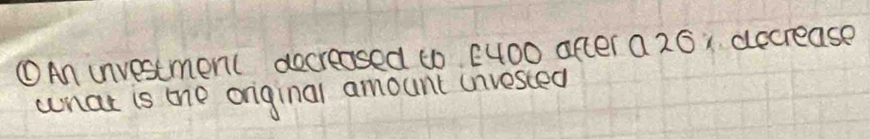 ① An investment decreased to £400 after a 20% decrease
what is the original amount invested